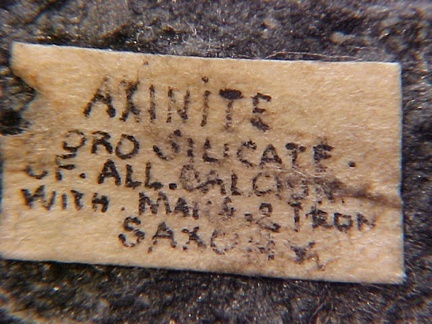 AXINITE
ORO SILICATE.
OF. ALL. CALCIUM
WITH. MANG. & IRON
SAXONY